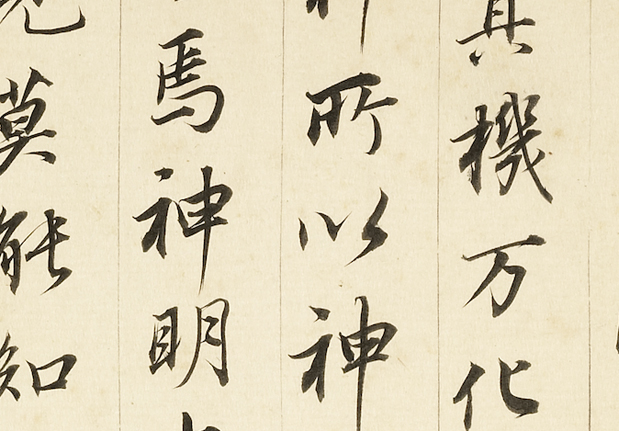 其機万化
所以神
焉神明
見莫能知